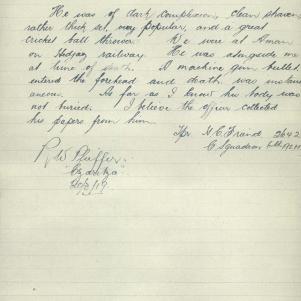 He was of dark complexion, clean shaven
rather thick set, very popular, and a great
cricket ball thrower. We were at Aman
on Hedjaz railway. He was alongside me
at time of death. A machine gun bullet
entered the forehead and death was instan
aneous. As far as I know his body was
not buried. I believe the officer collected
his papers from him.
Tpr. 2642
C Squadron
R W